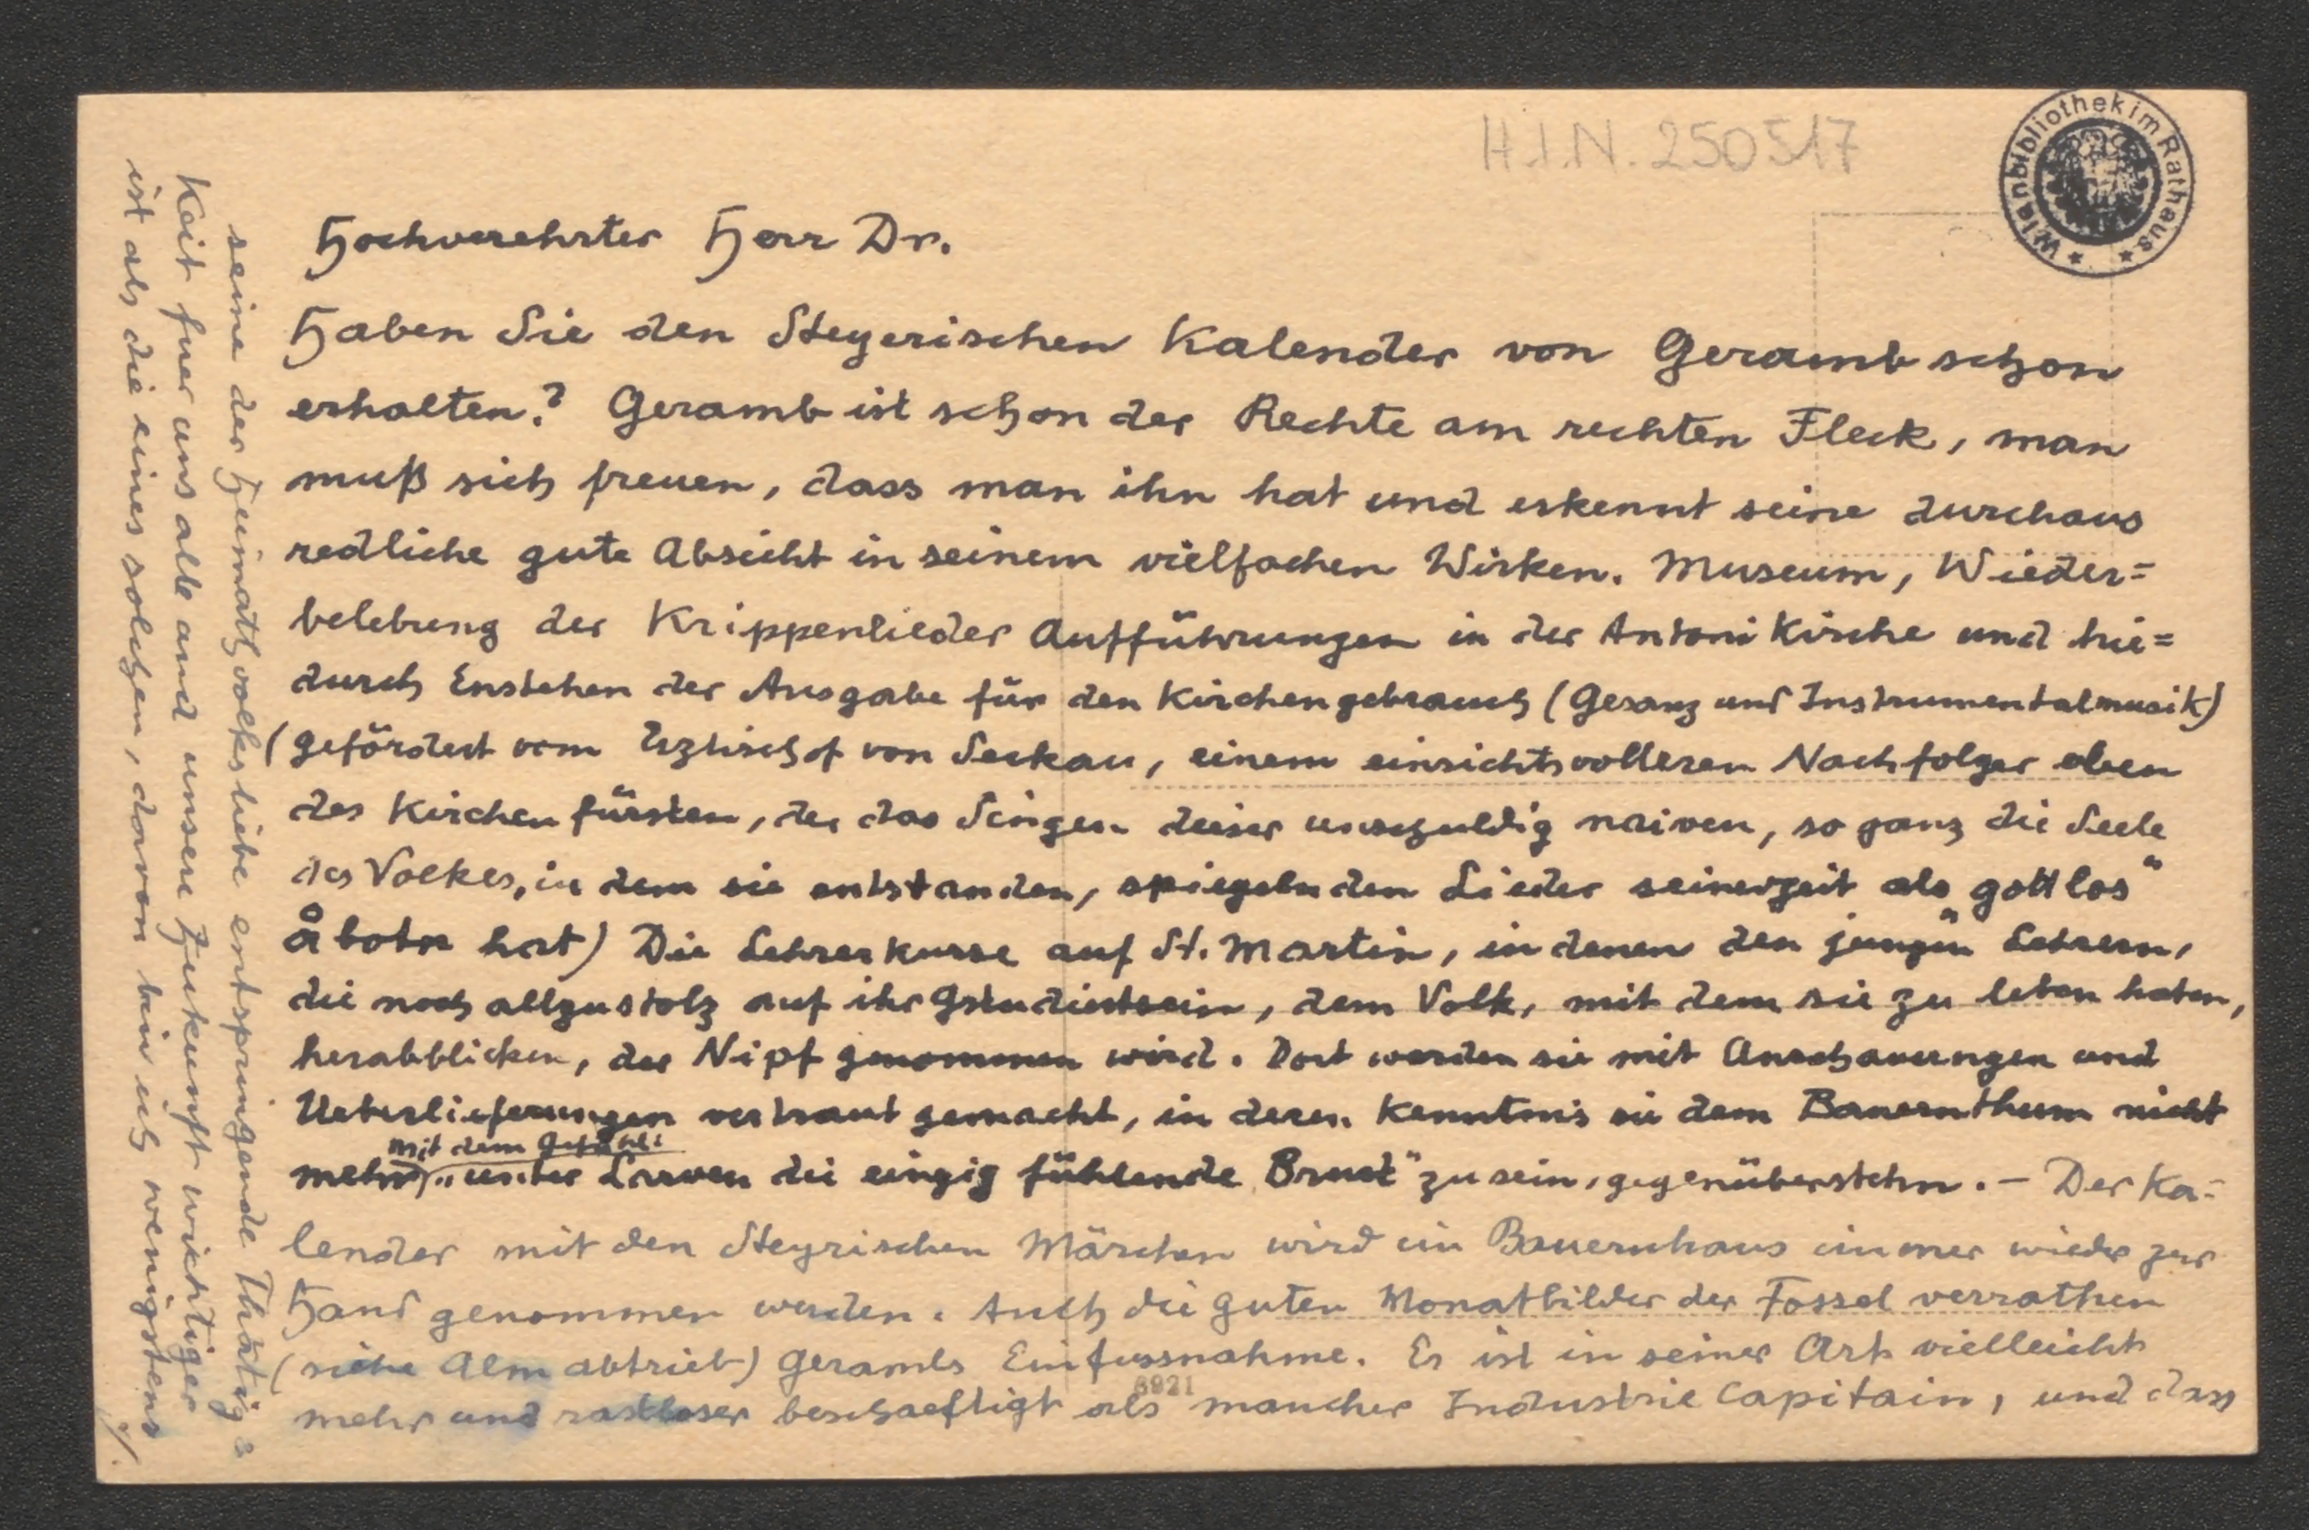 H.I.N. 250517
Wienbibliothek im Rathaus
Hochverehrter Herr Dr.
Haben Sie den Steyerischen Kalender von Geramb schon
erhalten? Geramb ist schon der Rechte am rechten Fleck, man
muß sich freuen, dass man ihn hat und erkennt seine durchaus
redliche gute Absicht in seinem vielfachen Wirken. Museum, Wieder=
belebung der Krippenlieder Aufführungen in der Antoni Kirche und hie=
durch Enstehen der Ausgabe für den Kirchengebrauch (Gesang und Instrumentalmusik)
(gefördert vom Erzbischof von Seckau, einem einsichtsvolleren Nachfolger eben
des Kirchenfürsten, der das Singen dieser unschuldig naiven, so ganz die Seele
des Volkes, in dem sie entstanden, spiegelnden Lieder seinerzeit als "gottlos"
åbotn hat) Die Lehrerkurse auf St. Martin, in denen den jungen Lehrern,
die noch allzustolz auf ihr Gstudiertsein, dem Volk, mit dem sie zu leben haben,
herabblicken, der Nipf genommen wird. Dort werden sie mit Anschauungen und
Ueberlieferungen vertraut gemacht, in deren Kenntnis sie dem Bauernthum nicht
mit dem Gefühl:
mehr, "unter Larven die einzig fühlende Brust" zu sein, gegenüberstehn. – Der Ka=
lender mit den Steyrischen Märchen wird im Bauernhaus immer wieder zur
Hand genommen werden. Auch die guten Monatbilder der Fossel verrathen
(siehe Almabtrieb) Geramb's Einflussnahme. Er ist in seiner Art vielleicht
mehr und rastloser beschaeftigt als mancher Industrie Capitain, und dass
8921
seine der Heimathvolksliebe entspringende Thätig=
keit fuer uns alle und unsere Zukunft wichtiger
ist als die eines solchen, davon bin ich wenigstens
./.